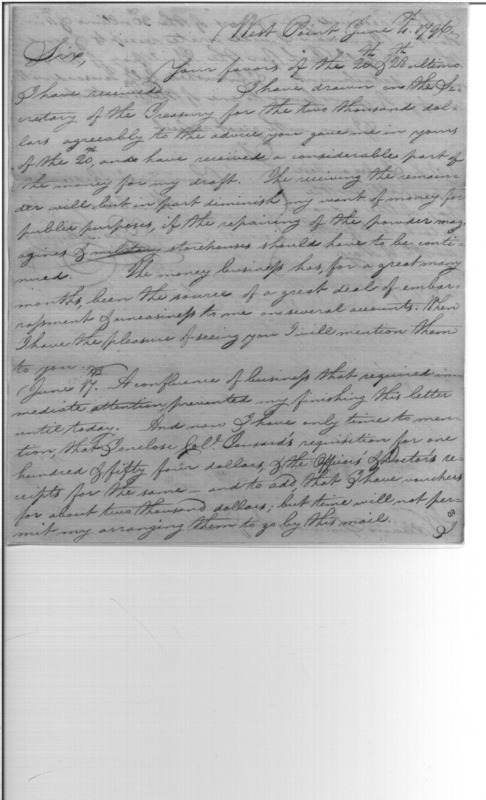 West Point June 4th. 1796.
Sir,
Your favors of the 20th & 28th ultimo
I have received. I have drawn on the Se-
cretary of the Treasury for the two thousand dol-
lars agreeably to the advice you gave me in yours
of the 20th, and have received a considerable part of
the money for my draft. The receiving the remain-
der will but in part diminish my want of money for
public purposes, if the repairing of the powder mag-
azines & military storehouses should have to be conti-
nued. The money business has, for a great many
months, been the source of a great deal of embar-
rassment & uneasiness to me on several accounts. When
I have the pleasure of seeing you I will mention them
to you.
June 17th. A confluence of business that required im-
mediate attention, prevented my finishing this letter
until today. And now I have only time to men-
tion, that I enclose Colo. requisition for one
hundred & fifty four dollars, & the Officers & Doctors re-
ceipts for the same — and to add that I have vouchers
for about two thousand dollars; but time will not per-
mit my arranging them to go by this mail.